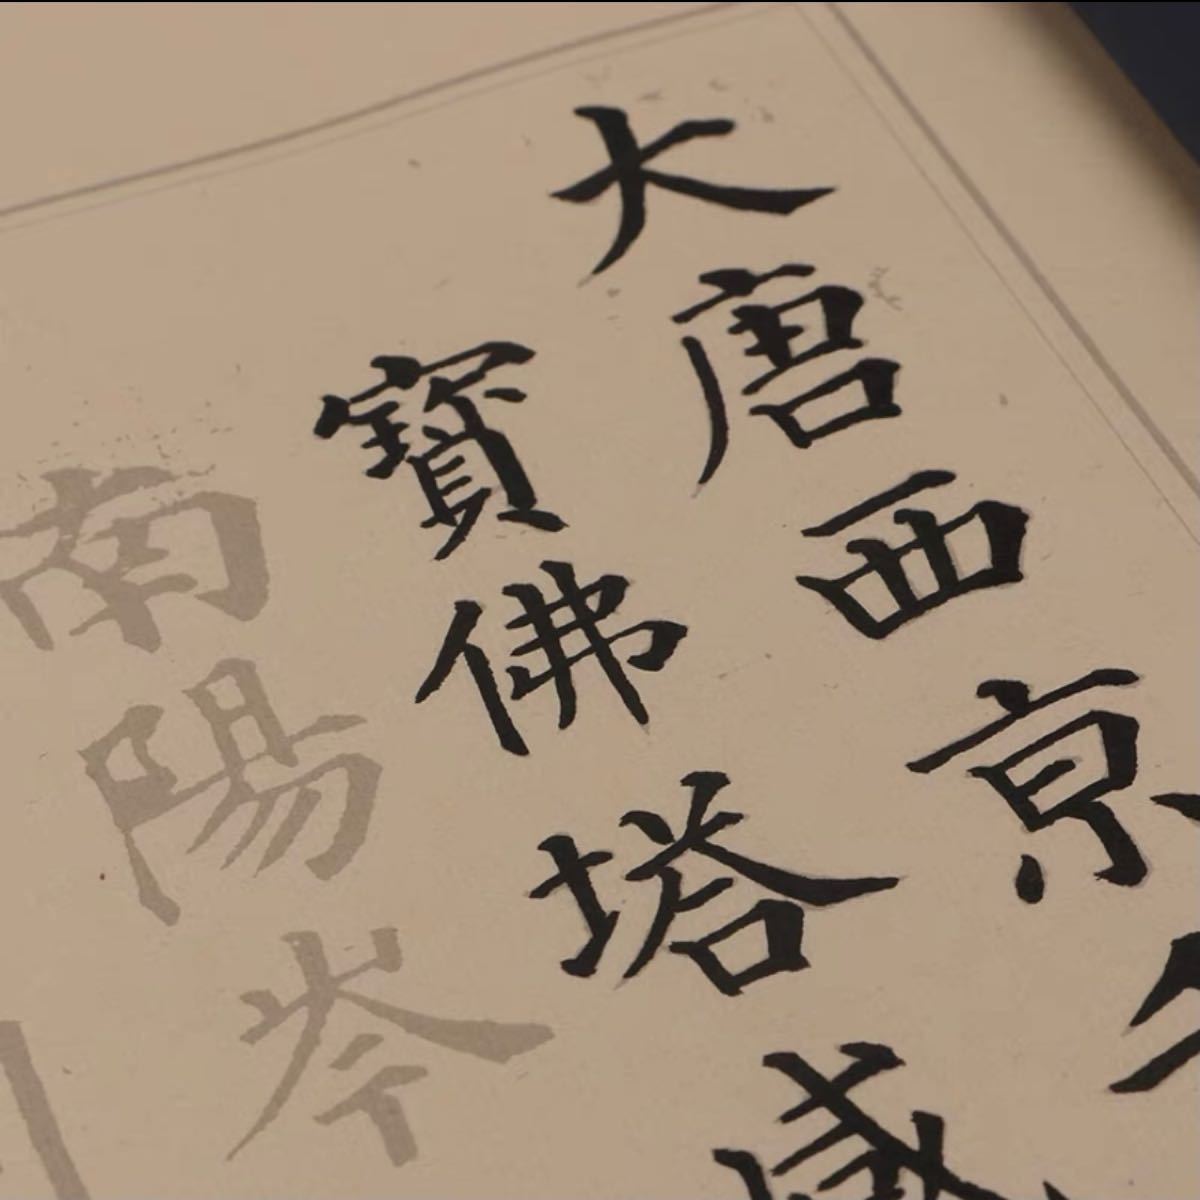 大唐西京
寶佛塔
南陽岑